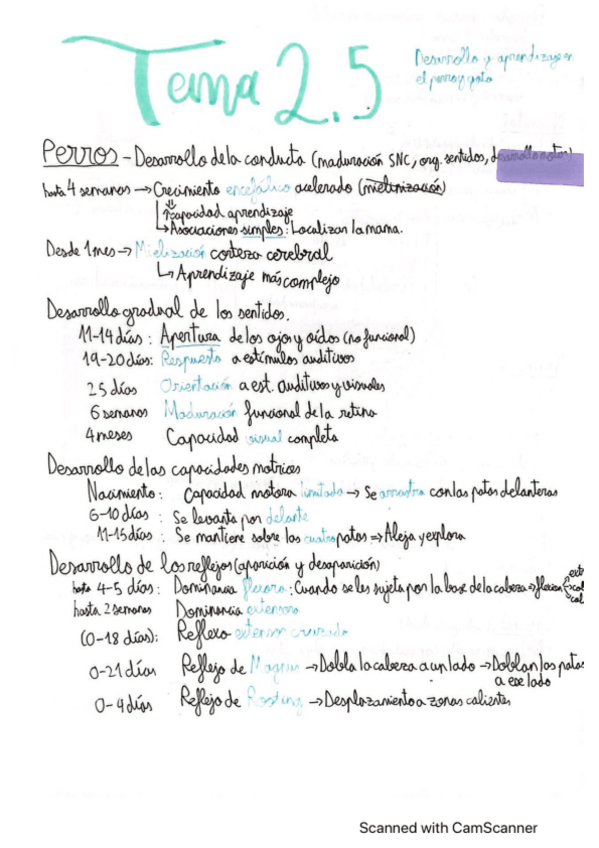 Tema 2.5
Desarrollo y aprendizaje en
el perro y gato
Perros - Desarrollo de la conducta (maduración SNC, org. sentidos, desarrollo motor)
hasta 4 semanas → Crecimiento encefálico acelerado (mielinización)
↑capacidad aprendizaje
→ Asociaciones simples: Localizan la mama.
Desde 1 mes → Mielización corteza cerebral
↳ Aprendizaje más complejo
Desarrollo gradual de los sentidos.
11-14 días: Apertura de los ojos y oídos (no funcional)
19-20 días: Respuesta a estímulos auditivos
25 días Orientación a est. auditivos y visuales
6 semanas Maduración funcional de la retina
4 meses Capacidad visual completa
Desarrollo de las capacidades motrices
Nacimiento: Capacidad motora limitada → Se arrastra con las patas delanteras
6-10 días: Se levanta por delante
11-15 días: Se mantiene sobre las cuatro patas ⇒ Aleja y explora
Desarrollo de los reflejos (aparición y desaparición)
hasta 4-5 días: Dominancia flexora: Cuando se les sujeta por la base de la cabeza → flexion
hasta 2 semanas Dominancia extensora
(0-18 días): Reflexo extensor cruzado
0-21 días Reflejo de Magnus → Dobla la cabeza a un lado → Doblan las patas
a ese lado
0-4 días Reflejo de Rooting → Desplazamiento a zonas calientes
Scanned with CamScanner